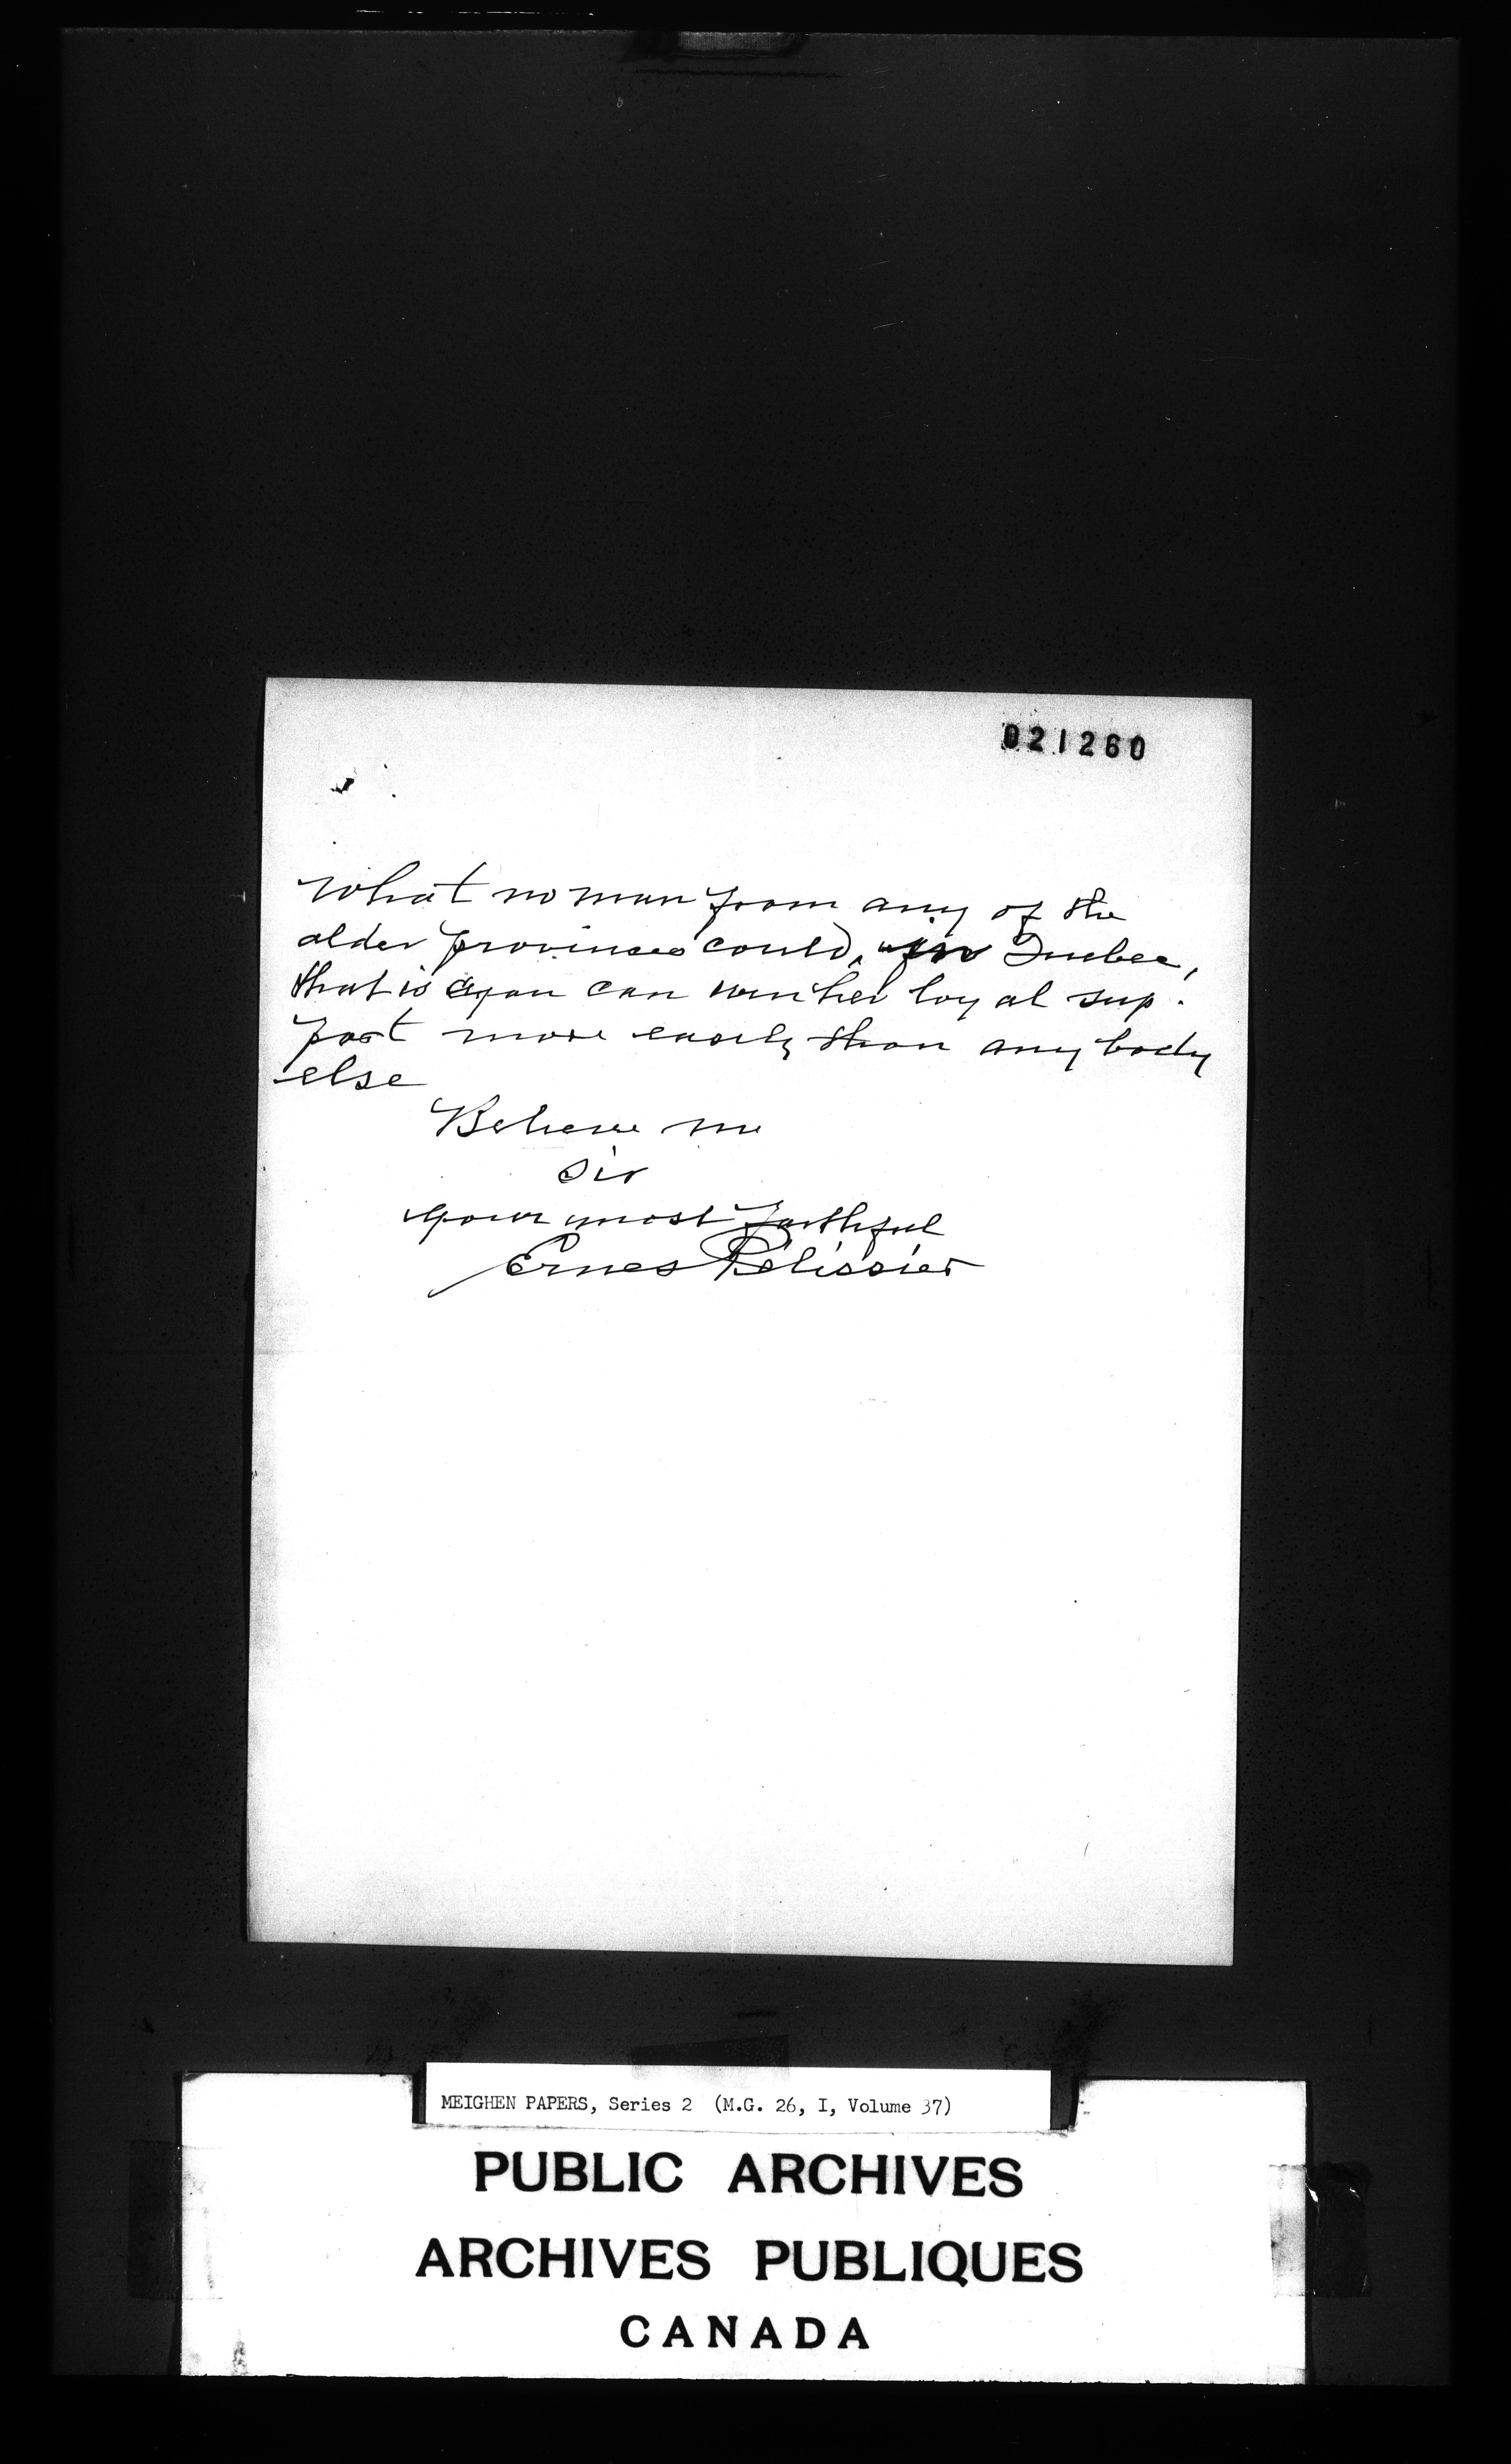 021260
What no man from any of the
older provinces could, in Quebec,
that is you can win her loyal sup-
port more easily than any body
else
Believe me
Sir
your most faithful
Ernes Pélissier
MEIGHEN PAPERS, Series 2 (M.G. 26, I, Volume 37)
PUBLIC ARCHIVES
ARCHIVES PUBLIQUES
CANADA